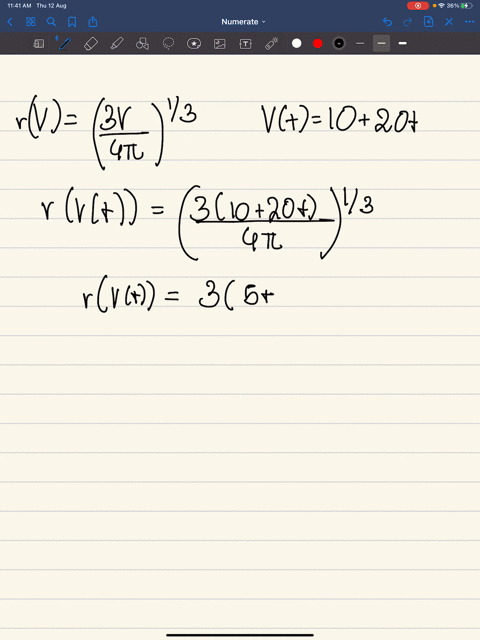 11:41 AM Thu 12 Aug
36%
Numerate
r(V) = (3V/4π)^1/3 V(t)=10+20t
r(V(t)) = (3(10+20t)/4π)^1/3
r(V(t)) = 3(5+